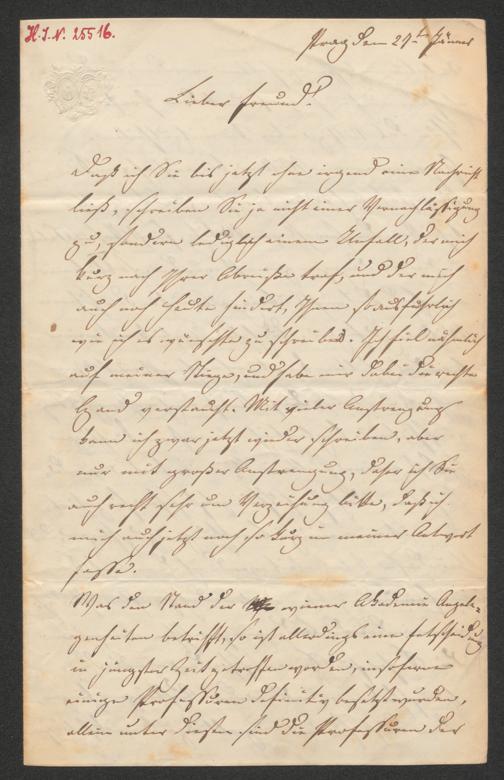 H. I. N. 25516.
Prag den 29t Jänner
Lieber Freund!
Daß ich Sie bis jetzt ohne irgend eine Nachricht
ließ, schreiben Sie ja nicht einer Vernachlässigung
zu, sondern lediglich einem Unfall, der mich
kurz nach Ihrer Abreise traf, und der mich
auch noch heute hindert, Ihnen so ausführlich
wie ich es wünschte zu schreiben. Ich fiel nähmlich
auf meiner Stiege, und habe mir dabei die rechte
Hand verstaucht. Mit vieler Anstrengung
kann ich zwar jetzt wieder schreiben, aber
nur mit großer Anstrengung, daher ich Sie
auch recht sehr um Verzeihung bitte, daß ich
mich auch jetzt noch so kurz in meiner Antwort
fasse.
Was den Stand der wiener Akademie Angele-
genheiten betrifft, so ist allerdings eine Entscheidung
in jüngster Zeit getroffen worden, insoferne
einige Professuren definitiv besetzt wurden,
allein unter diesen sind die Professuren der